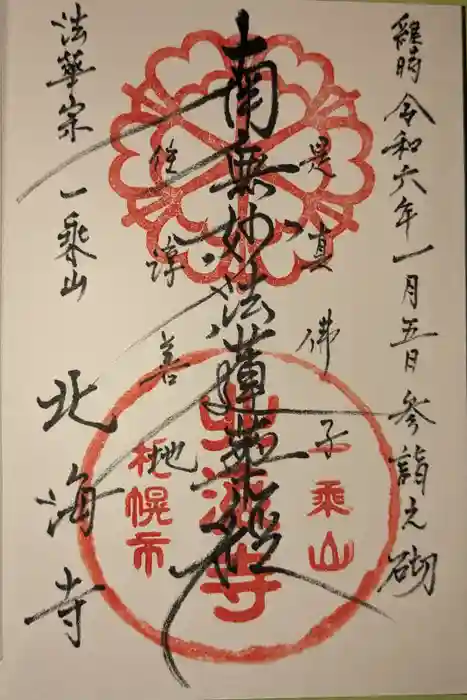 維時 令和六年一月五日 参詣之砌
是真佛子
南無妙法蓮華經
住淳善地
法華宗 一乗山
北海寺
一乗山
北海寺
札幌市